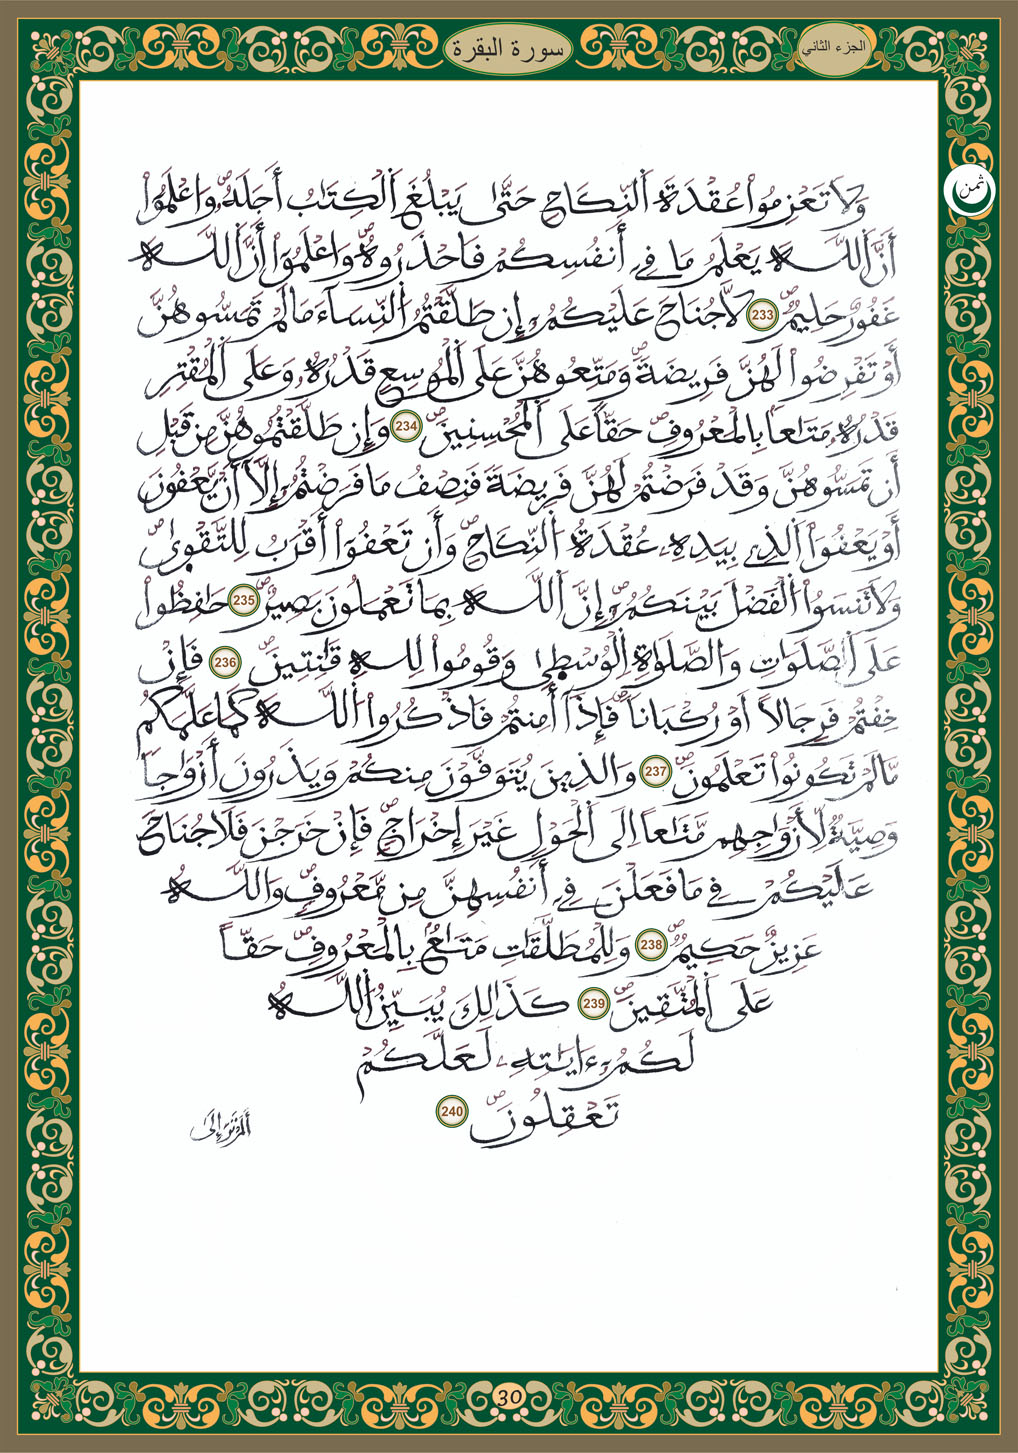 الجزء الثاني
سورة البقرة
ثمن
وَلَا تَعْزِمُواْ عُقْدَةَ اَ۬لنِّكَاحِ حَتَّىٰ يَبْلُغَ اَ۬لْكِتَٰبُ أَجَلَهُۥ وَاعْلَمُوٓاْ
أَنَّ اَ۬للَّهَ يَعْلَمُ مَا فِےٓ أَنفُسِكُمْ فَاحْذَرُوهُ وَاعْلَمُوٓاْ أَنَّ اَ۬للَّهَ
غَفُورٌ حَلِيمٌ 233 لَّا جُنَاحَ عَلَيْكُمُۥٓ إِن طَلَّقْتُمُ اُ۬لنِّسَآءَ مَا لَمْ تَمَسُّوهُنَّ
أَوْ تَفْرِضُواْ لَهُنَّ فَرِيضَةً وَمَتِّعُوهُنَّ عَلَى اَ۬لْمُوسِعِ قَدْرُهُۥ وَعَلَى اَ۬لْمُقْتِرِ
قَدْرُهُۥ مَتَٰعاً بِالْمَعْرُوفِ حَقّاً عَلَى اَ۬لْمُحْسِنِينَ 234 وَإِن طَلَّقْتُمُوهُنَّ مِن قَبْلِ
أَن تَمَسُّوهُنَّ وَقَدْ فَرَضْتُمْ لَهُنَّ فَرِيضَةً فَنِصْفُ مَا فَرَضْتُمُۥٓ إِلَّآ أَنْ يَّعْفُونَ
أَوْ يَعْفُوَاْ اَ۬لذِے بِيَدِهِۦ عُقْدَةُ اُ۬لنِّكَاحِ وَأَن تَعْفُوٓاْ أَقْرَبُ لِلتَّقْوَىٰ
وَلَا تَنسَوُاْ اُ۬لْفَضْلَ بَيْنَكُمُۥٓ إِنَّ اَ۬للَّهَ بِمَا تَعْمَلُونَ بَصِيرٌ 235 حَٰفِظُواْ
عَلَى اَ۬لصَّلَوَٰتِ وَالصَّلَوٰةِ اِ۬لْوُسْطَىٰ وَقُومُواْ لِلهِ قَٰنِتِينَ 236 فَإِنْ
خِفْتُمْ فَرِجَالاً أَوْ رُكْبَاناً فَإِذَآ أَمِنتُمْ فَاذْكُرُواْ اُ۬للَّهَ كَمَا عَلَّمَكُم
مَّا لَمْ تَكُونُواْ تَعْلَمُونَ 237 وَالذِينَ يُتَوَفَّوْنَ مِنكُمْ وَيَذَرُونَ أَزْوَٰجاً
وَصِيَّةٌ لِّأَزْوَٰجِهِم مَّتَٰعاً اِلَى اَ۬لْحَوْلِ غَيْرَ إِخْرَاجٍ فَإِنْ خَرَجْنَ فَلَا جُنَاحَ
عَلَيْكُمْ فِے مَا فَعَلْنَ فِےٓ أَنفُسِهِنَّ مِن مَّعْرُوفٍ وَاللَّهُ
عَزِيزٌ حَكِيمٌ 238 وَلِلْمُطَلَّقَٰتِ مَتَٰعٌ بِالْمَعْرُوفِ حَقّاً
عَلَى اَ۬لْمُتَّقِينَ 239 كَذَٰلِكَ يُبَيِّنُ اُ۬للَّهُ
لَكُمُۥٓ ءَايَٰتِهِۦ لَعَلَّكُمْ
تَعْقِلُونَ 240
أَلَمْ تَرَ إِلَى
30